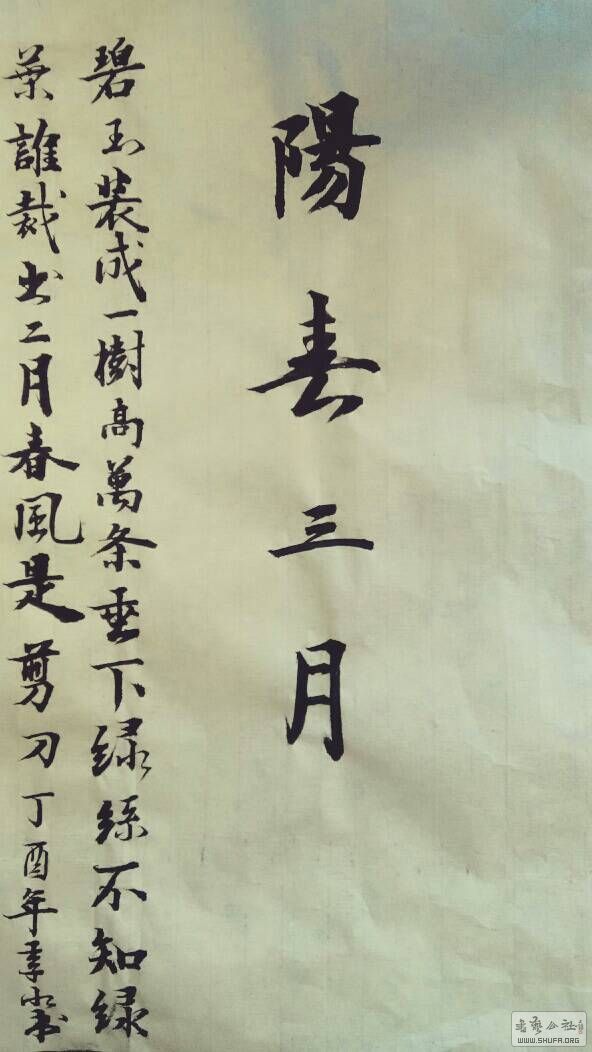 陽春三月
碧玉装成一樹高萬条垂下绿絲不知绿
葉誰裁出二月春風是剪刀丁酉年李
書藝公社
WWW.SHUFA.ORG